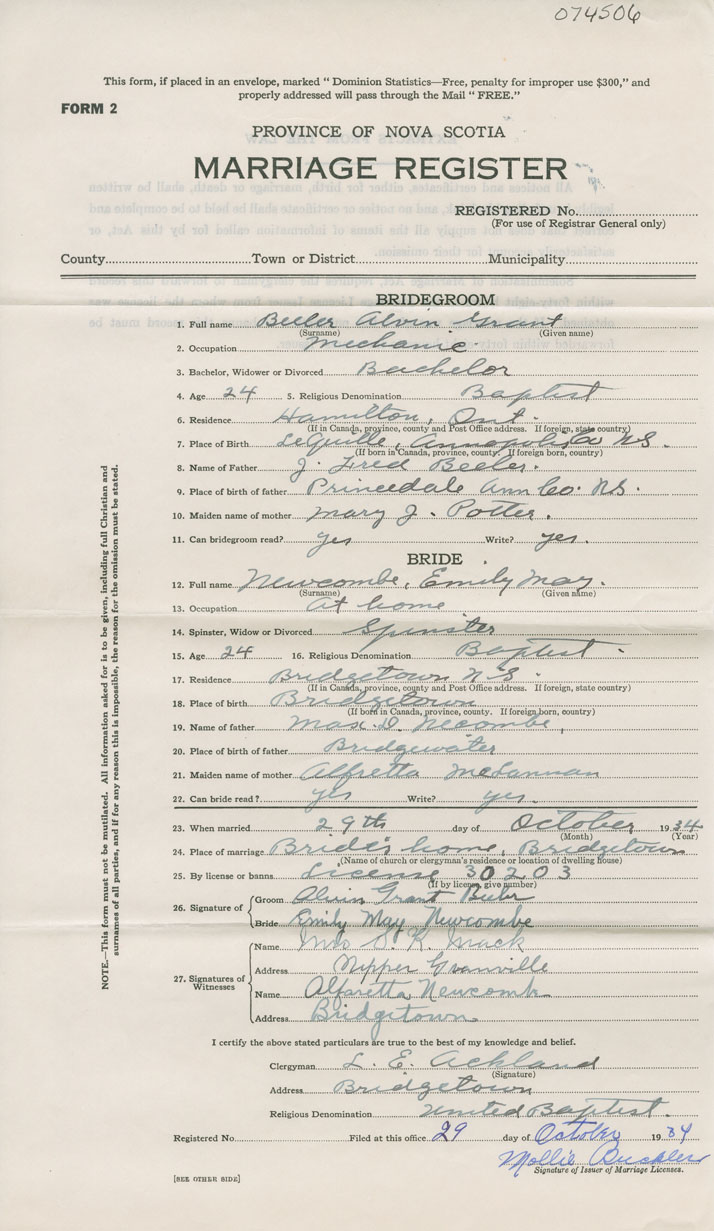 074506
This form, if placed in an envelope, marked “ Dominion Statistics—Free, penalty for improper use $300,” and
properly addressed will pass through the Mail “ FREE.”
FORM 2
PROVINCE OF NOVA SCOTIA
MARRIAGE REGISTER
REGISTERED No.
(For use of Registrar General only)
County Town or District Municipality
BRIDEGROOM
1. Full name Beeler Alvin Grant
(Surname) (Given name)
2. Occupation Mechanic
3. Bachelor, Widower or Divorced Bachelor
4. Age 24 5. Religious Denomination Baptist
6. Residence Hamilton, Ont.
(If in Canada, province, county and Post Office address. If foreign, state country)
7. Place of Birth LeQuille, Annapolis Co N.S.
(If born in Canada, province, county. If foreign born, country)
8. Name of Father J. Fred Beeler.
9. Place of birth of father Princedale Ann Co. N.S.
10. Maiden name of mother Mary J. Potter.
11. Can bridegroom read? Yes Write? yes.
BRIDE
12. Full name Newcombe, Emily May.
(Surname) (Given name)
13. Occupation At home
14. Spinster, Widow or Divorced Spinster
15. Age 24 16. Religious Denomination Baptist.
17. Residence Bridgetown N.S.
(If in Canada, province, county and Post Office address. If foreign, state country)
18. Place of birth Bridgetown
(If born in Canada, province, county. If foreign born, country)
19. Name of father Max. D. Necombe,
20. Place of birth of father Bridgewater
21. Maiden name of mother Alfretta McLannan
22. Can bride read? yes Write? yes.
23. When married 29th day of October 1934
(Month) (Year)
24. Place of marriage Bride's home, Bridgetown
(Name of church or clergyman's residence or location of dwelling house)
25. By license or banns License 30203
(If by license, give number)
26. Signature of Groom Alvin Grant Beeler
Bride Emily May Newcombe
27. Signatures of Witnesses
Name Mrs S. K. Mack
Address Upper Granville
Name Alfaretta Newcomb
Address Bridgetown
I certify the above stated particulars are true to the best of my knowledge and belief.
Clergyman L. E. Ackland
(Signature)
Address Bridgetown
Religious Denomination United Baptist.
Registered No. Filed at this office 29 day of October 1934
Mollie Buckler
Signature of Issuer of Marriage Licenses.
[SEE OTHER SIDE]
NOTE.—This form must not be mutilated. All information asked for is to be given, including full Christian and
surnames of all parties, and if for any reason this is impossible, the reason for the omission must be stated.